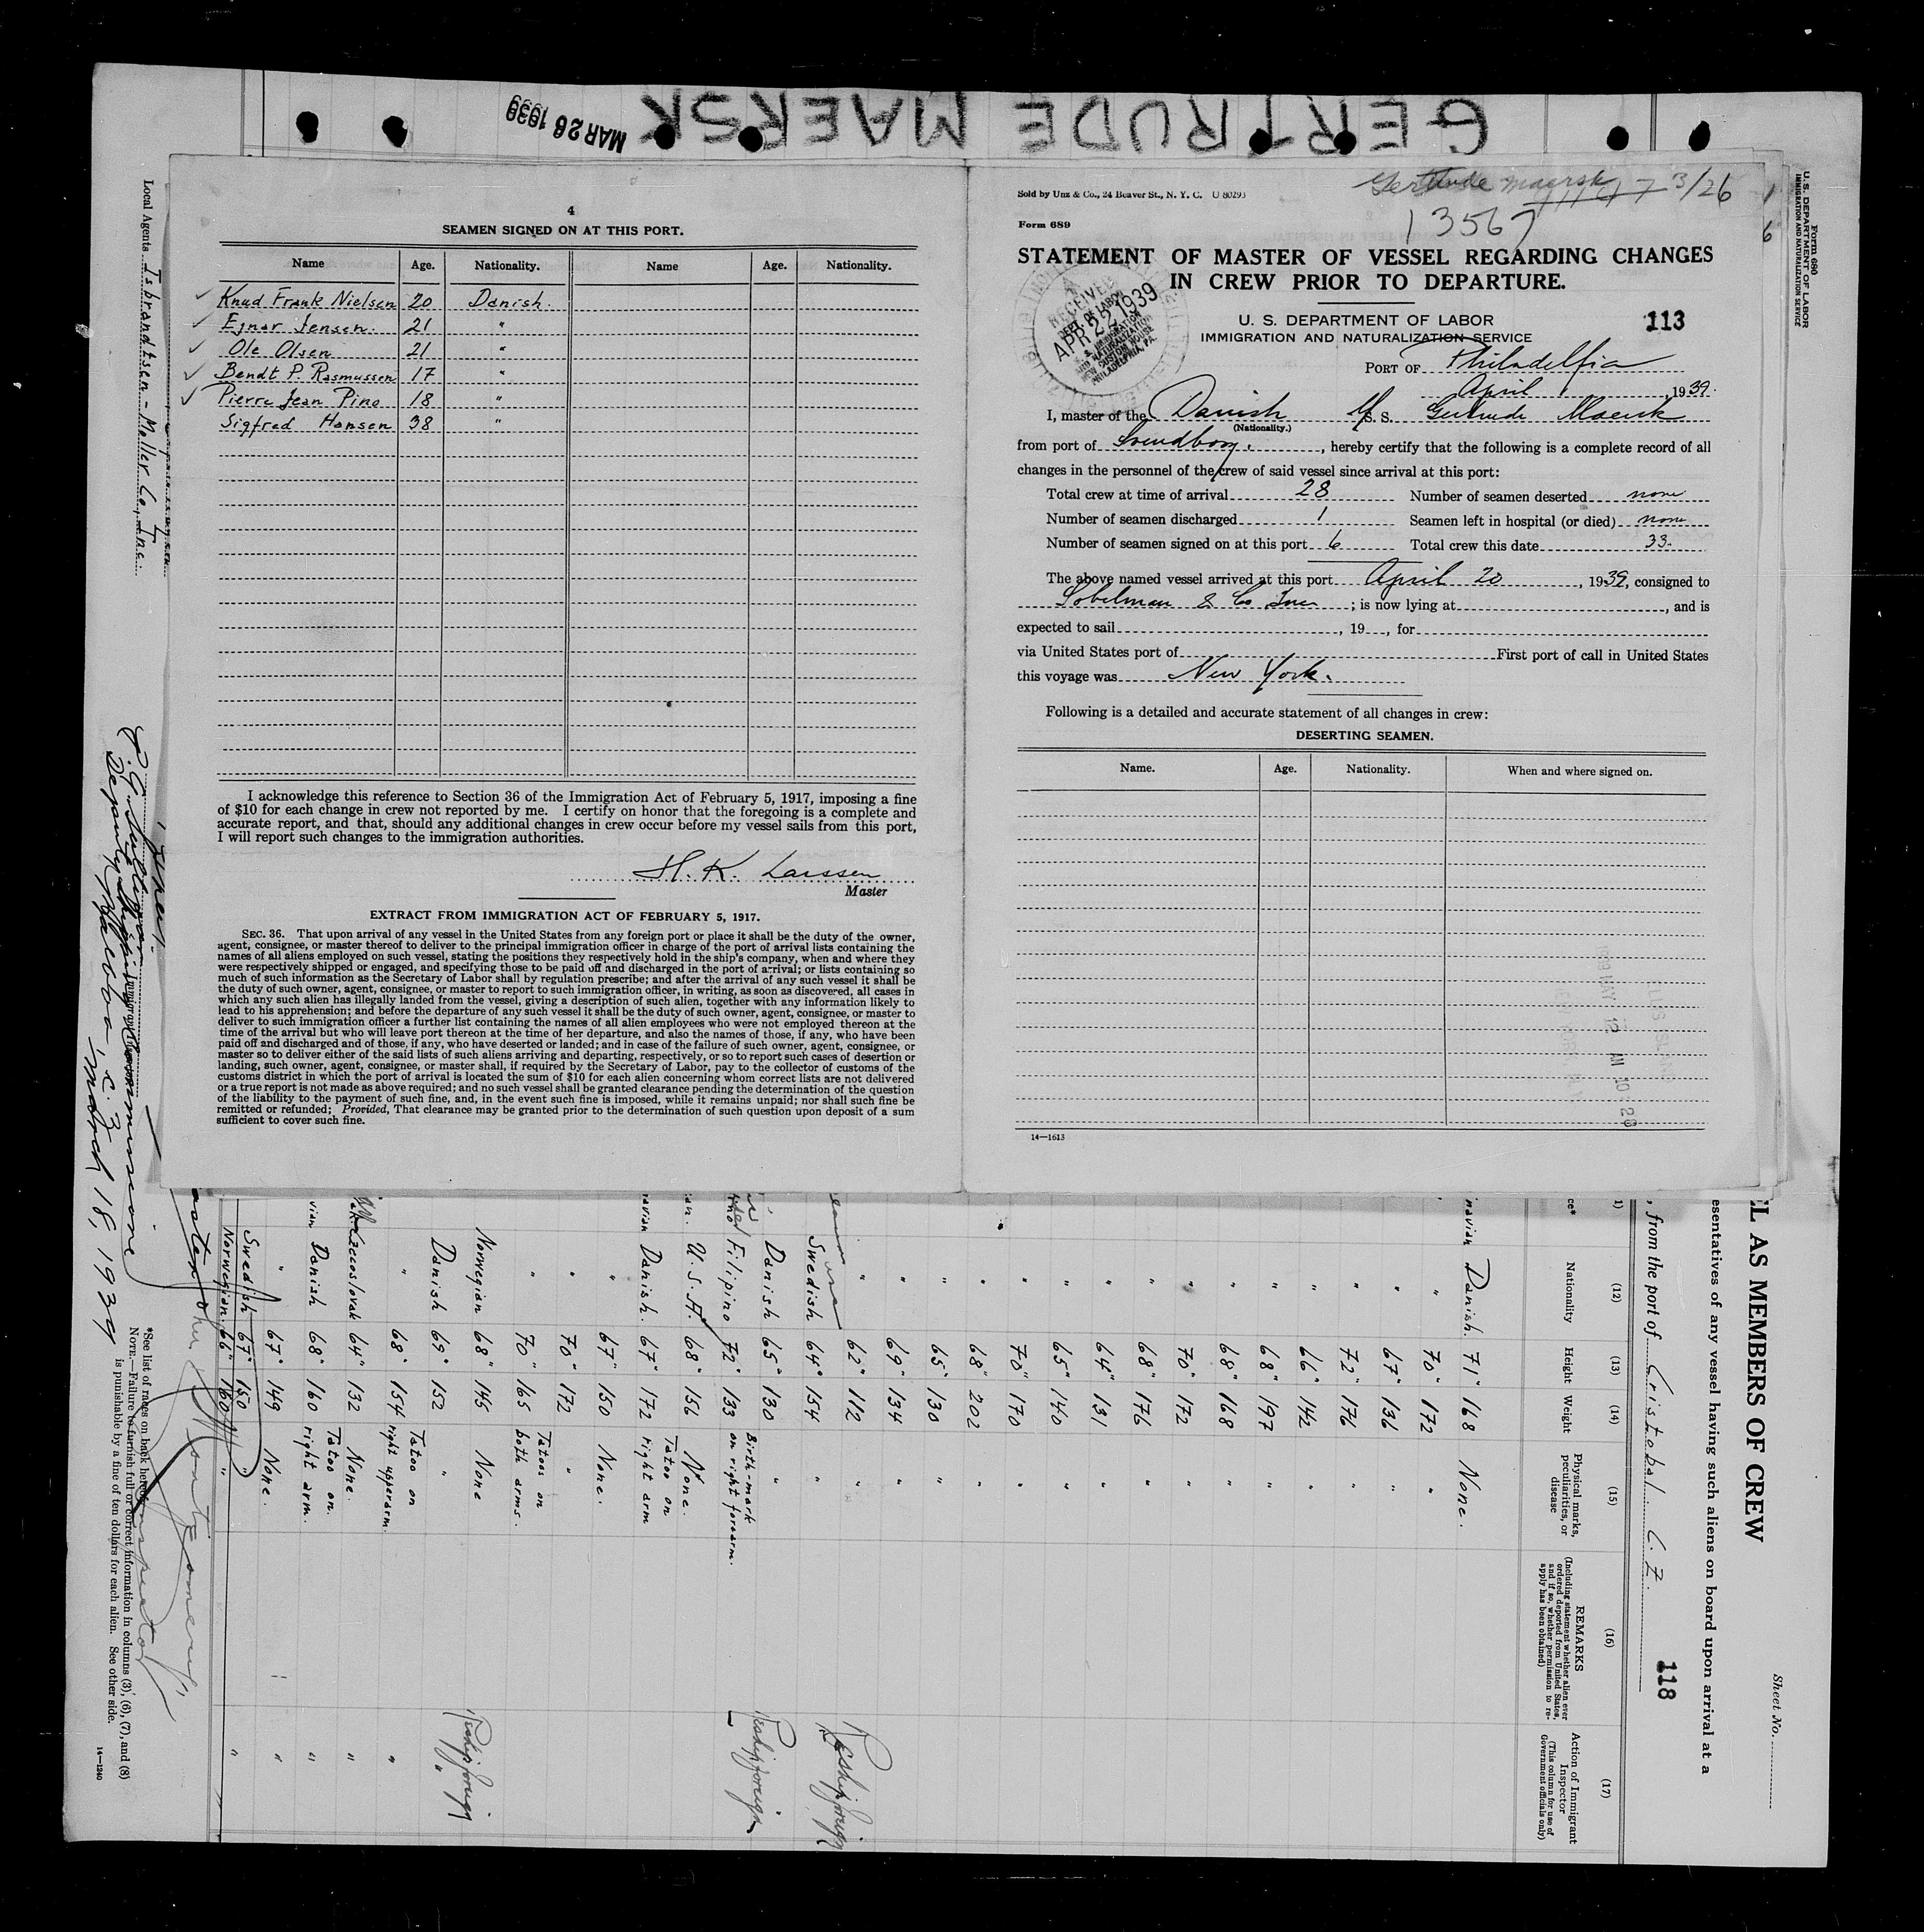 GERTRUDE MAERSK
MAR 26 1939
4
SEAMEN SIGNED ON AT THIS PORT.
Name Age. Nationality. Name Age. Nationality.
Knud Frank Nielsen 20 Danish.
Ejnar Jensen. 21 "
Ole Olsen 21 "
Bendt P. Rasmussen 17 "
Pierre Jean Pino 18 "
Sigfred Hansen 38 "
I acknowledge this reference to Section 36 of the Immigration Act of February 5, 1917, imposing a fine
of $10 for each change in crew not reported by me. I certify on honor that the foregoing is a complete and
accurate report, and that, should any additional changes in crew occur before my vessel sails from this port,
I will report such changes to the immigration authorities.
H. K. Larssen
Master
EXTRACT FROM IMMIGRATION ACT OF FEBRUARY 5, 1917.
SEC. 36. That upon arrival of any vessel in the United States from any foreign port or place it shall be the duty of the owner,
agent, consignee, or master thereof to deliver to the principal immigration officer in charge of the port of arrival lists containing the
names of all aliens employed on such vessel, stating the positions they respectively hold in the ship's company, when and where they
were respectively shipped or engaged, and specifying those to be paid off and discharged in the port of arrival; or lists containing so
much of such information as the Secretary of Labor shall by regulation prescribe; and after the arrival of any such vessel it shall be
the duty of such owner, agent, consignee, or master to report to such immigration officer, in writing, as soon as discovered, all cases in
which any such alien has illegally landed from the vessel, giving a description of such alien, together with any information likely to
lead to his apprehension; and before the departure of any such vessel it shall be the duty of such owner, agent, consignee, or master to
deliver to such immigration officer a further list containing the names of all alien employees who were not employed thereon at the
time of the arrival but who will leave port thereon at the time of her departure, and also the names of those, if any, who have been
paid off and discharged and of those, if any, who have deserted or landed; and in case of the failure of such owner, agent, consignee, or
master so to deliver either of the said lists of such aliens arriving and departing, respectively, or so to report such cases of desertion or
landing, such owner, agent, consignee, or master shall, if required by the Secretary of Labor, pay to the collector of customs of the
customs district in which the port of arrival is located the sum of $10 for each alien concerning whom correct lists are not delivered
or a true report is not made as above required; and no such vessel shall be granted clearance pending the determination of the question
of the liability to the payment of such fine, and, in the event such fine is imposed, while it remains unpaid; nor shall such fine be
remitted or refunded; Provided, That clearance may be granted prior to the determination of such question upon deposit of a sum
sufficient to cover such fine.
Sold by Unz & Co., 24 Beaver St., N. Y. C. U 80293
Gertrude Maersk 3/26
13567
Form 689
STATEMENT OF MASTER OF VESSEL REGARDING CHANGES
IN CREW PRIOR TO DEPARTURE.
U. S. DEPARTMENT OF LABOR
IMMIGRATION AND NATURALIZATION SERVICE
113
RECEIVED
DEPT. OF LABOR
APR 22 1939
U. S. IMMIGRATION
AND NATURALIZATION
NEW CUSTOM HOUSE
PHILADELPHIA, PA.
PORT OF Philadelfia
April 1939.
I, master of the Danish M. S. Gertrude Maersk
(Nationality.)
from port of Svendborg., hereby certify that the following is a complete record of all
changes in the personnel of the crew of said vessel since arrival at this port:
Total crew at time of arrival 28 Number of seamen deserted none
Number of seamen discharged 1 Seamen left in hospital (or died) none
Number of seamen signed on at this port 6 Total crew this date 33.
The above named vessel arrived at this port April 20, 1939, consigned to
Sobelman & Co Inc; is now lying at, and is
expected to sail, 19, for
via United States port of First port of call in United States
this voyage was New York.
Following is a detailed and accurate statement of all changes in crew:
DESERTING SEAMEN.
Name. Age. Nationality. When and where signed on.
1939 MAY 12 AM 10 28
14—1613
Form 680
U. S. DEPARTMENT OF LABOR
IMMIGRATION AND NATURALIZATION SERVICE
Sheet No.
AS MEMBERS OF CREW
esentatives of any vessel having such aliens on board upon arrival at a
, from the port of Cristobal C. Z.
118
(12) (13) (14) (15) (16) (17)
Nationality Height Weight Physical marks, peculiarities, or disease
REMARKS
(Including statement whether alien ever ordered deported from United States, and if so, whether permission to reapply has been obtained)
Action of Immigrant Inspector
(This column for use of Government officials only)
navian Danish. 71" 168 None.
" 70" 172 "
" 67" 136 "
" 72" 176 "
" 66" 142 "
" 68" 197 "
" 68" 168 "
" 70" 172 "
" 68" 176 "
" 64" 131 "
" 65" 140 "
" 70" 170 "
" 68" 202 "
" 65" 130 "
" 69" 134 "
" 62" 112 "
Swedish 64" 154 " Reship foreign
Danish 65" 130 "
Filipino 72" 133 Birth-mark on right forearm. Reship foreign
U. S. A. 68" 156 None.
vian Danish. 67" 172 Tatoo on right arm
" 67" 150 None.
" 70" 172 "
" 70" 165 Tatoos on both arms.
Norwegian 68" 145 None Reship foreign
Danish 69" 152 " "
" 68" 154 Tatoo on right upperarm. "
Czecoslovak 64" 132 None. "
vian Danish 68" 160 Tatoo on right arm. "
" 67" 149 None. "
Swedish 67" 150 "
Norwegian. 66" 160 " "
Local Agents Isbrandtsen-Moller Co, Inc.
Balboa, C. Z.
March 18, 1939
*See list of races on back hereof.
NOTE.—Failure to furnish full or correct information in columns (3), (6), (7), and (8)
is punishable by a fine of ten dollars for each alien. See other side.
14—1240